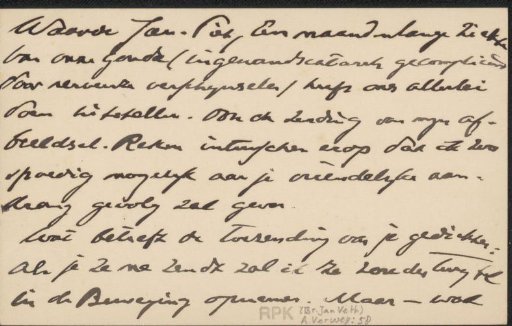 Waarde Jan-Piet, Een maandenlange ziekte
van onze jonge (ingewandscatarrh gecompliceerd
door nerveuze verschijnselen) heeft ons allerlei
doen uitstellen. Ook de zending van mijn af-
beeldsel. Reken intusschen erop dat ik zoo
spoedig mogelijk aan je vriendelijke aan-
drang gevolg zal geven.
Wat betreft de toezending van je gedichten:
als je ze me zendt zal ik ze zonder twijfel
in de Beweging opnemen. Maar — wat
RPK
(Br. Jan Veth)
A. Verwey: 58